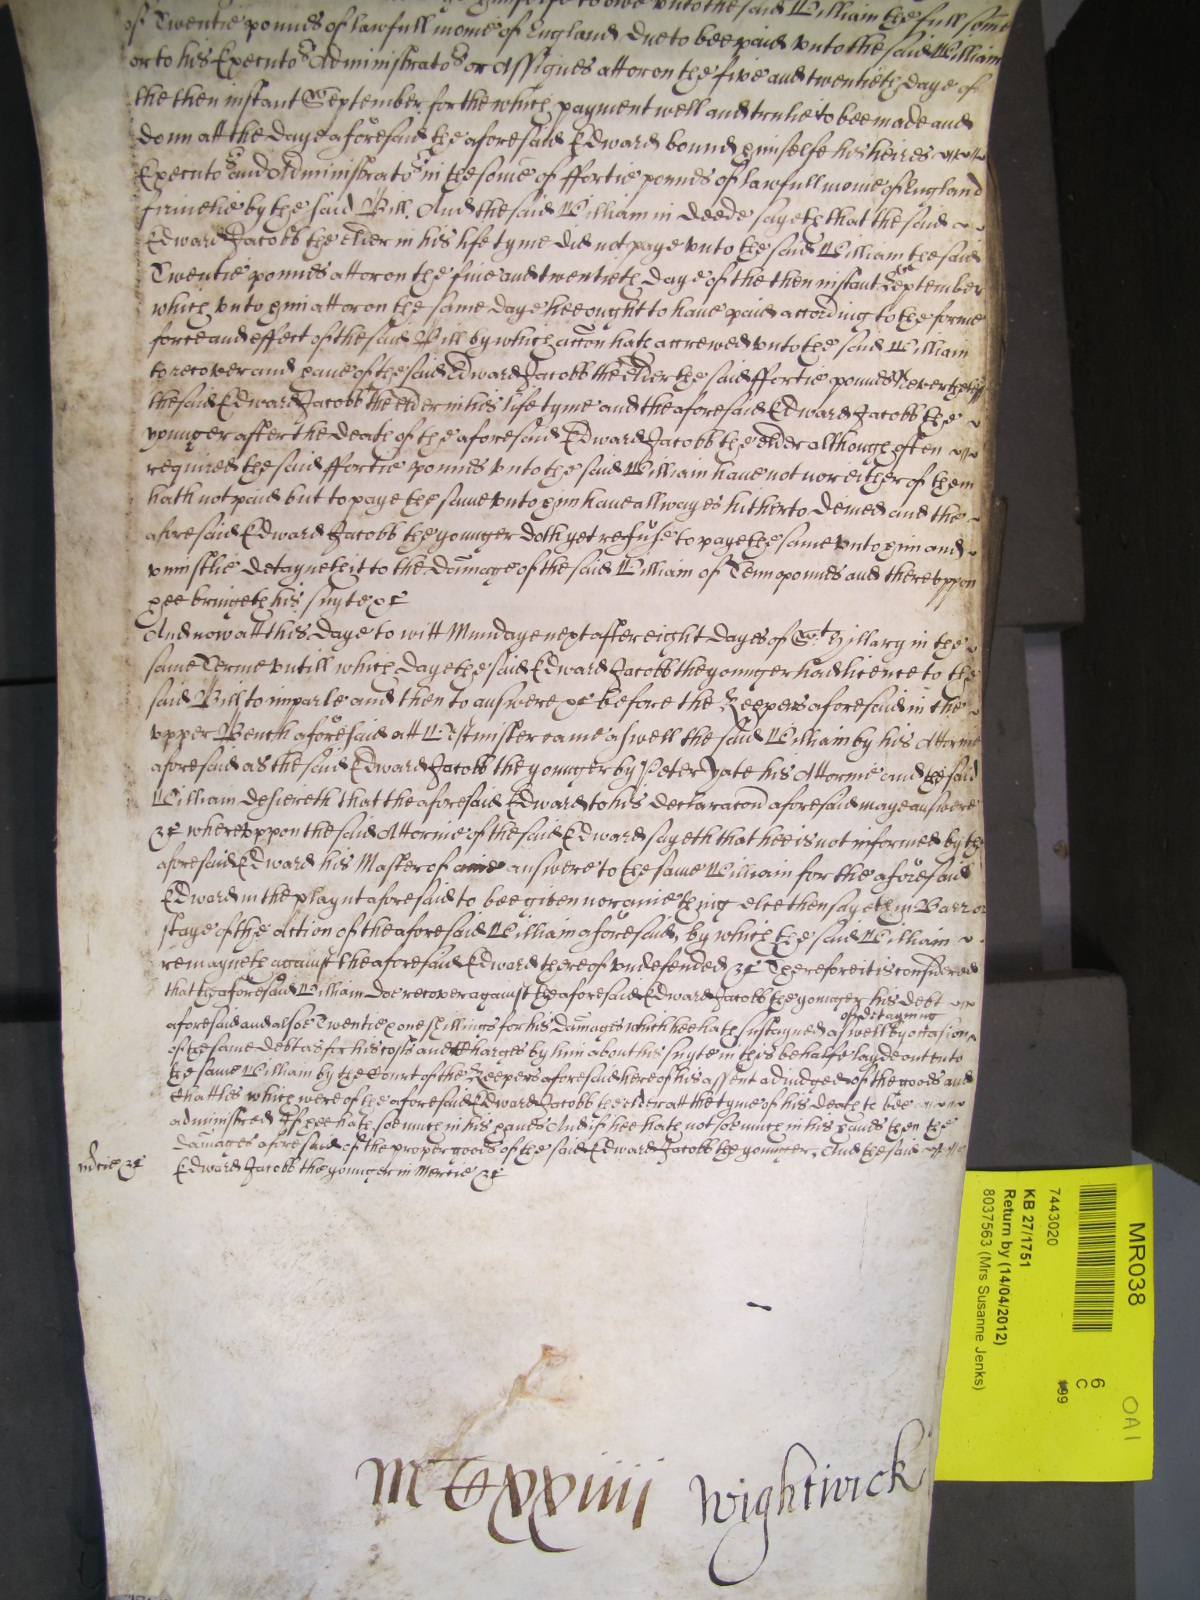 himselfe to owe unto the said William the full some
of Twentie pounds of lawfull monie of England due to bee paid unto the said William
or to his Executors Administrators or Assignes att or on the five and twentieth daye of
the then instant September for the which payment well and trulie to bee made and
donn att the daye aforesaid the aforesaid Edward bound himselfe his heires
Executors and Administrators in the some of ffortie pounds of lawfull monie of England
firmelie by the said Bill. And the said William in deede sayeth that the said
Edward Jacobb the elder in his life tyme did not paye unto the said William the said
Twentie pounds att or on the five and twentieth daye of the then instant September
which unto him att or on the same daye hee ought to have paid according to the forme
force and effect of the said Bill by which accon hath accrewed unto the said William
to recover and have of the said Edward Jacobb the elder the said ffortie pounds Neverthelesse
the said Edward Jacobb the elder in his life tyme and the aforesaid Edward Jacobb the
younger after the death of the aforesaid Edward Jacobb the elder although often
required the said ffortie pounds unto the said William have not nor either of them
hath not paid but to paye the same unto him have allwayes hitherto denied and the
aforesaid Edward Jacobb the younger doth yet refuse to paye the same unto him and
uniustlie detayneth it to the damage of the said William of Tenn pounds and thereuppon
hee bringeth his suyte &c
And now att this daye to witt Mundaye next after eight dayes of St Hillary in the
same Terme untill which daye the said Edward Jacobb the younger had licence to the
said Bill to imparle and then to answere &c before the Keepers aforesaid in the
upper Bench aforesaid att Westminster came aswell the said William by his Attornie
aforesaid as the said Edward Jacobb the younger by Peter Yate his Attornie and the said
William desiereth that the aforesaid Edward to his declaracon aforesaid maye answere
&c whereuppon the said Attornie of the said Edward sayeth that hee is not informed by the
aforesaid Edward his Master of anie answere to the same William for the aforesaid
Edward in the playnt aforesaid to bee given nor anie thing else then sayeth in Barr or
staye of the Action of the aforesaid William aforesaid, by which the said William
remayneth against the aforesaid Edward thereof undefended &c Therefore it is considered
that the aforesaid William doe recover against the aforesaid Edward Jacobb the younger his debt
aforesaid and alsoe Twentie one shillings for his damages which hee hath susteyned aswell by occasion
of detayning
of the same debt as for his costs and Charges by him about his suyte in this behalfe layde out unto
the same William by the Court of the Keepers aforesaid here of his assent adiudged of the goods and
Chattles which were of the aforesaid Edward Jacobb the elder att the tyme of his death to bee
administred If hee hath soe much in his hands And if hee hath not soe much in his hands then the
damages aforesaid of the proper goods of the said Edward Jacobb the younger. And the said
mercie &c Edward Jacobb the younger in Mercie &c
Wightwick
MR038
6
C
99
OA1
7443020
KB 27/1751
Return by (14/04/2012)
8037563 (Mrs Susanne Jenks)